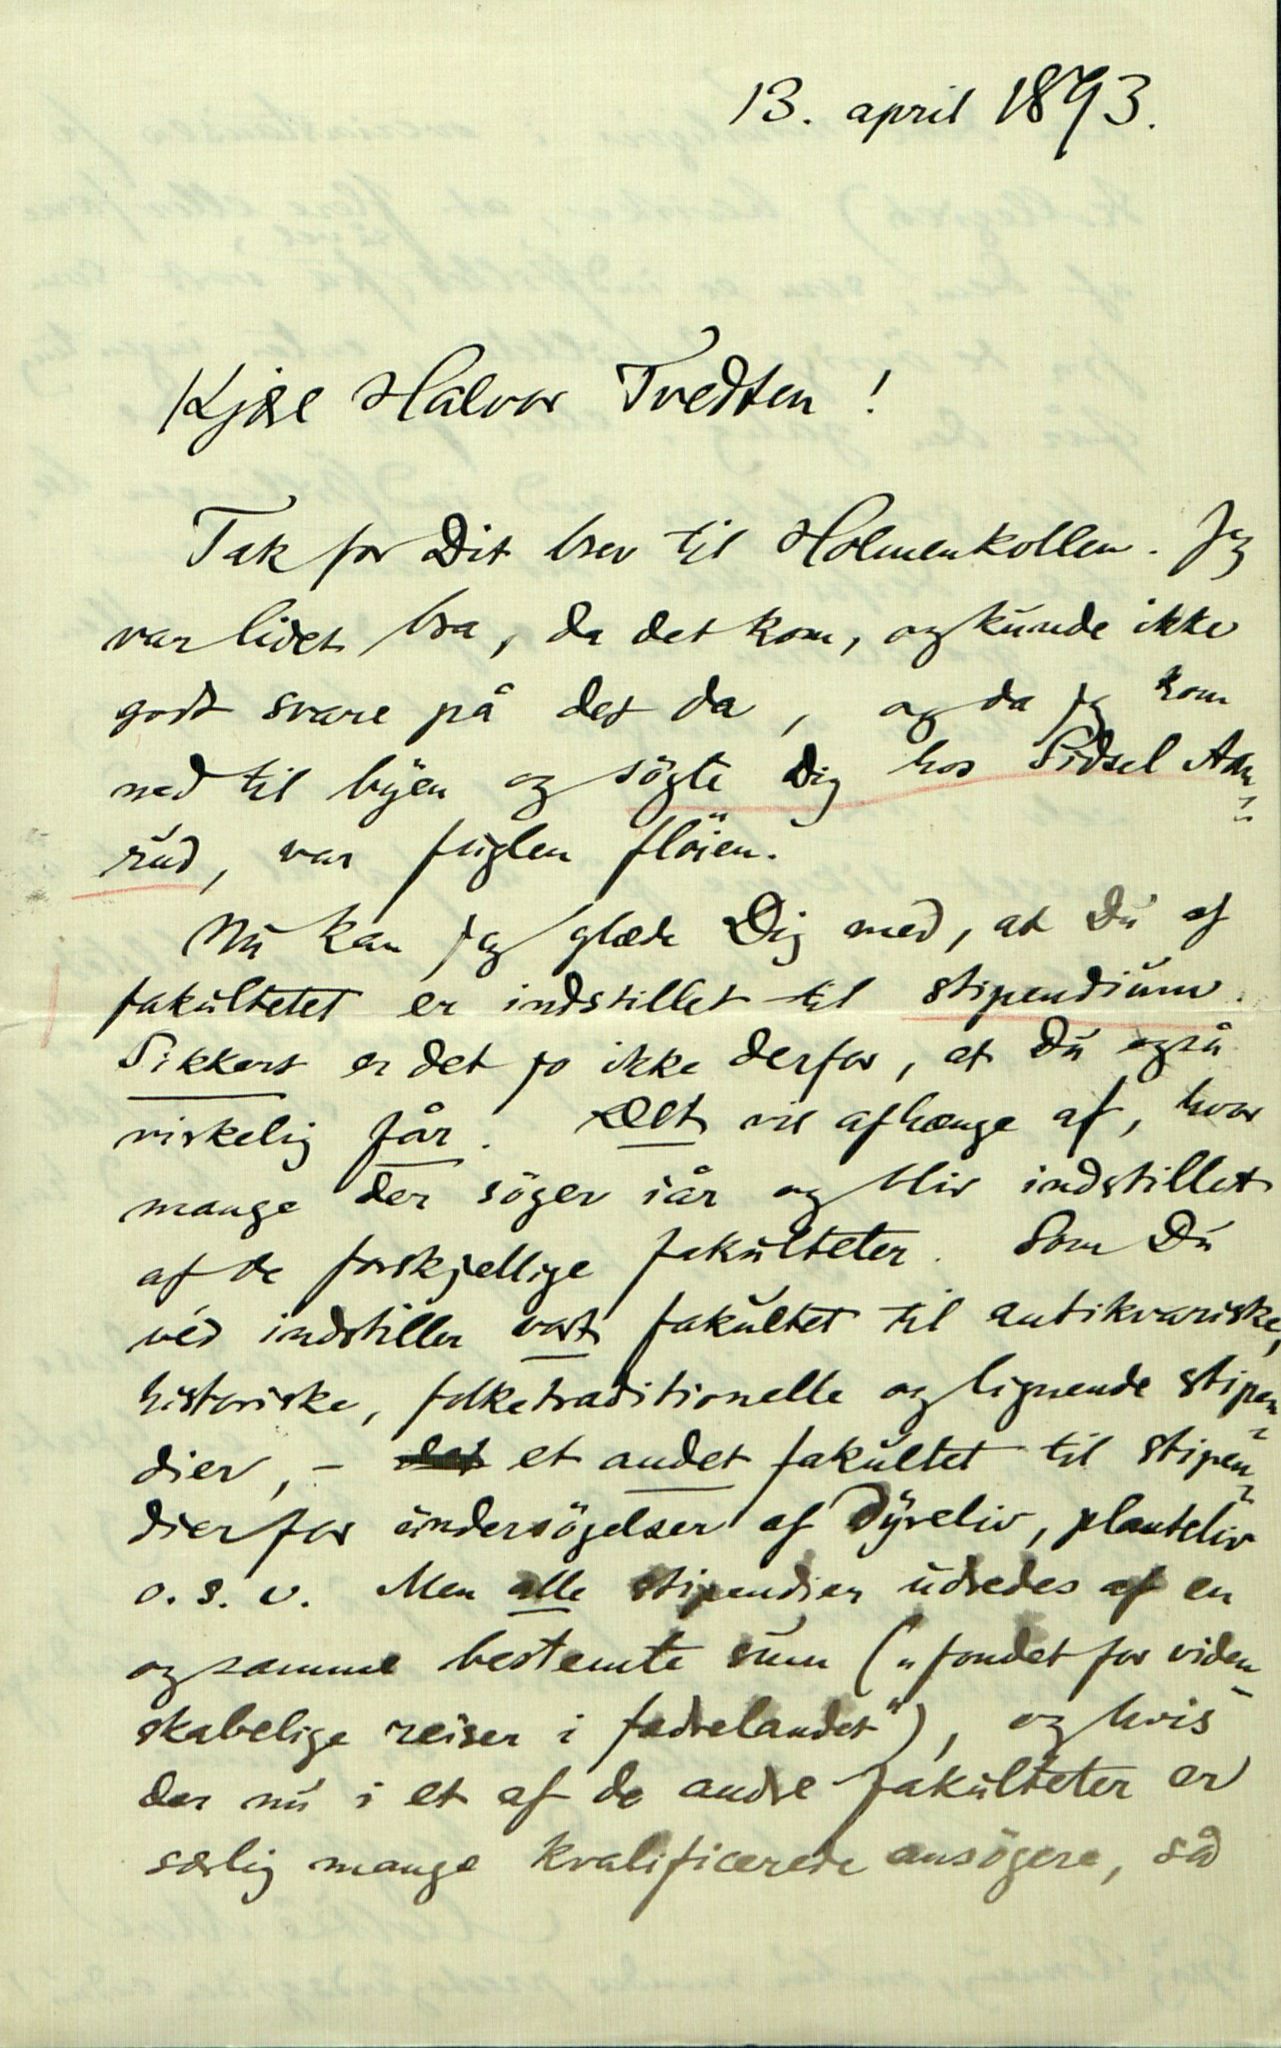 13. april 1893.
Kjære Halvor Tvedten!
Tak for Dit brev til Holmenkollen. Jeg
var lidet bra, da det kom, og kunde ikke
godt svare på det da, og da jeg kom
ned til byen og søgte Dig hos Sidsel Aam-
rud, var fuglen fløien.
Nu kan jeg glæde Dig med, at Du af
fakultetet er indstillet til stipendium.
Sikkert er det jo ikke derfor, at Du også
virkelig får. Det vil afhænge af, hvor
mange der søger iår og bliv indstillet
af de forskjellige fakulteter. Som Du
véd indstiller vort fakultet til antikvariske,
historiske, folketraditionelle og lignende stipen-
dier, – det et andet fakultet til stipen-
dier for undersøgelser af dyreliv, planteliv
o. s. v. Men alle stipendier udredes af en
og samme bestemte sum („fondet for viden-
skabelige reiser i fædrelandet"), og hvis
der nu i et af de andre fakulteter er
særlig mange kvalificerede ansøgere, så